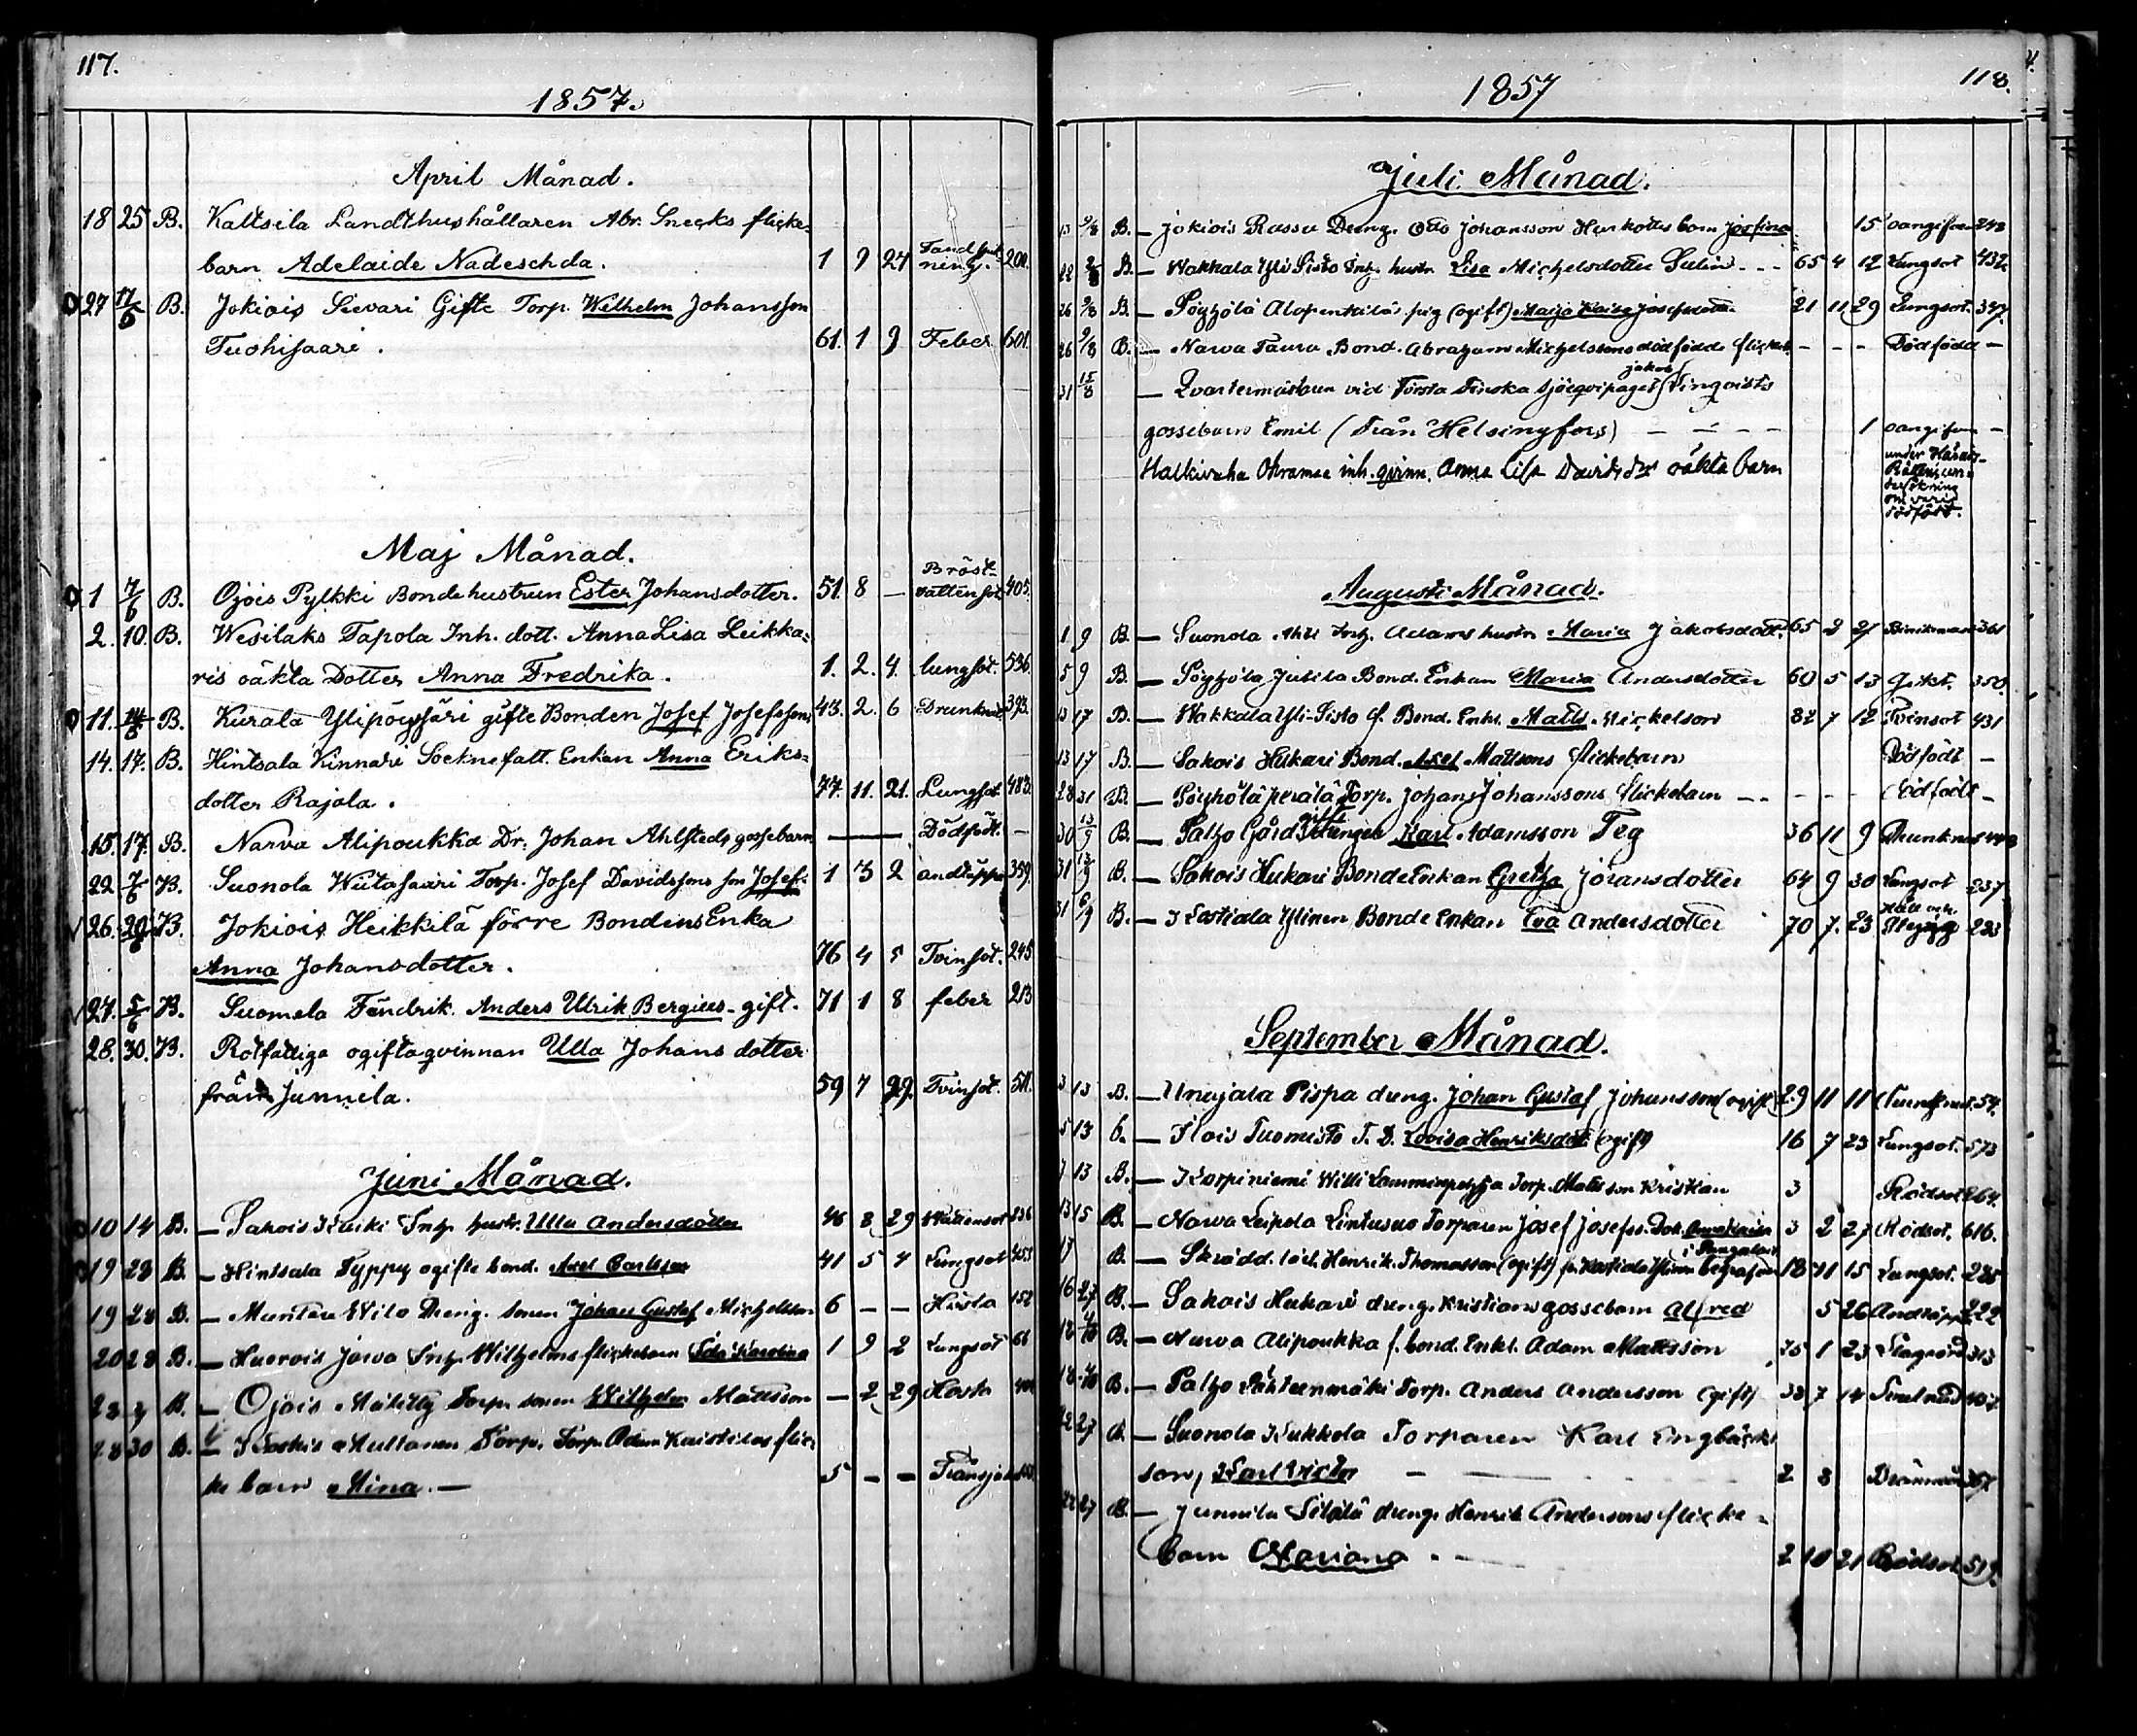 117.
1857.
April Månad.
18 25 B. Kaltsila Landthushållaren Abr. Snecks flicke-
barn Adelaide Nadeschda. 1 9 27 200.
27 17/5 B. Jokiois Sievari Gifte Torp. Wilhelm Johansson
Tuohisaari. 61. 1 9 Feber 601.
Maj Månad.
Bröst-
1 7/6 B. Ojois Pylkki Bondehustrun Ester Johansdotter. 51. 8 — vattensot 405.
2. 10. B. Wesilaks Tapola Inh. dott. Anna Lisa Leikka-
ris oäkta Dotter Anna Fredrika. 1. 2. 4. lungsot. 536.
11. B. Kurala Ylipöyssäri gifte Bonden Josef Josefsson 43. 2. 6 393.
14. 17. B. Hintsala Kinnari Socknefatt. Enkan Anna Eriks-
dotter Rajala. 77. 11. 21. Lungsot. 483.
15. 17. B. Narva Alipoukka Dr. Johan Ahlsteds gossebarn — Dödfödt. —
22 7/6 B. Suonola Wiitasaari Torp. Josef Davidssons son Josef. 1 3 2 andtäppa 359.
26. B. Jokiois Heikkilä förre Bondens Enka
Anna Johansdotter. 76 4 5 Tvinsot. 245
27. 5/6 B. Suomela Fändrik. Anders Ulrik Bergius - gift. 71 1 8 feber 213
28. 30. B. Rotfattiga ogifta qvinnan Ulla Johans dotter
från Junnila. 59 7 29. Tvinsot. 511.
Juni Månad.
10 14 B. — Sakois Inh. hustr. Ulla Andersdotter 46 8 29 Wattensot
19 28 B. — Hintsala Typpy ogifte bond. Axel Carlsson 41 5 4 Lungsot 453
19 28 B. — Dreng. sonen Johan Gustaf Michelsson 6 — — Hosta 152
20 28 B. — Huovois Jowa Inh. Wilhelms flickebarn Ida Karolina 1 9 2 Lungsot 66
B. — Ojois Torp. sonen Wilhelm Mattsson — 2 29 Hosta
28 30 B. — Multanen Torp. Torp. Adam flic
ke barn Mina. — 5 — —
118.
1857
Juli Månad.
13 9/8 B. — Jokiois Rassa Dreng. Otto Johansson barn Josefina 15 oangifven 248
22 B. — Wakkala Yli Sisto Inh. hustr. Lisa Michelsdotter 65 4 12 Lungsot 432
26 9/8 B. — Pöyhölä pig. (ogift) Maja Kaisa Josefsdotter 21 11 29 Lungsot. 357.
26 9/8 B. — Narva Taura Bond. Abraham Michelssons dödfödde flickeb. — — — Dödfödd —
Jakob
31 15/8 — Qvartermästaren vid Första Finska Sjöeqvipaget
gossebarn Emil (Från Helsingfors) — — — 1 oangifven —
Halkivaha inh. qvinn. Anna Lisa Davidsdtr oäkta barn
under Härads-
Rättens un-
dersökning
om varit
dödfödt.
Augusti Månad.
1 9 B. — Suonola Inh. Adams hustr. Maria Jakobsdott. 65 2 361
5 9 B. — Pöyhölä Jutila Bond. Enkan Maria Andersdotter 60 5 13 350.
13 17 B. — Wakkala Yli-Sisto f. Bond. Enkl. Matts Mickelson 82 7 12 Tvinsot 431
13 17 B. — Sakois Hukari Bond. Axel Mattsons flickebarn Dödfödt —
28 31 B. — Pöyhölä Perälä Torp. Johan Johanssons flickebarn — — — Dödfödt —
gifte
30 13/9 B. — Palho Gård Drengen Karl Adamsson Teg 36 11 9
31 13/9 B. — Sakois Hukari Bonde Enkan Greta Johansdotter 64 9 30 Lungsot 237
Håll och
31 6/9 B. — Kostiala Ylinen Bonde Enkan Eva Andersdotter 70 7. 23 Styng 223
September Månad.
3 13 B. — Unajala Pispa dreng. Johan Gustaf Johansson (ogift) 29 11 11 54.
5 13 B. — Ilois Tuomisto T. D. Lovisa Henriksdott. (ogift) 16 7 23 Lungsot. 573
7 13 B. — Korpiniemi Torp. Matts son Kristian 3 Rödsot 264.
13 15 B. — Narva Leipola Torparen Josef Josefss. Dott. Anna Kaisa 3 2 27 Rödsot. 616.
17 B. — Skrädd. lärl. Henrik Thomasson (ogift) begrafven 18 11 15 Lungsot. 225
16 27 B. — Sakois Hukari dreng. Kristians gossebarn Alfred 5 26 Andtäppa 222
18 4/10 B. — Narva Alipoukka f. bond. Enkl. Adam Mattsson 75 1 23 313
18 4/10 B. — Palho Torp. Anders Andersson (gift) 38 7 14
22 27 B. — Suonola Kukkola Torparen Karl Engbäcks
son, Karl Victor — 2 8 367
22 27 B. — Junnila dreng. Henrik Andersons flicke-
barn Mariana. — 2 10 21 Rödsot. 519.